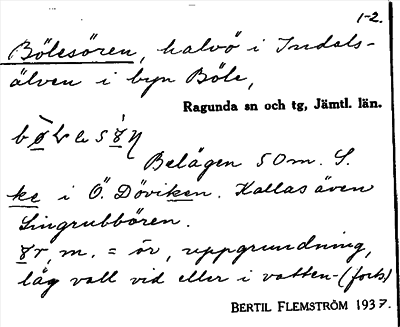 1-2.
Bölesören, halvö i Indals-
älven i byn Böle,
Ragunda sn och tg, Jämtl. län.
Belägen 50 m. S.
ke i Ö. Döviken. Kallas även
Lingrubbören.
m. = ör, uppgrundning,
låg vall vid eller i vatten-(forts)
BERTIL FLEMSTRÖM 1937.